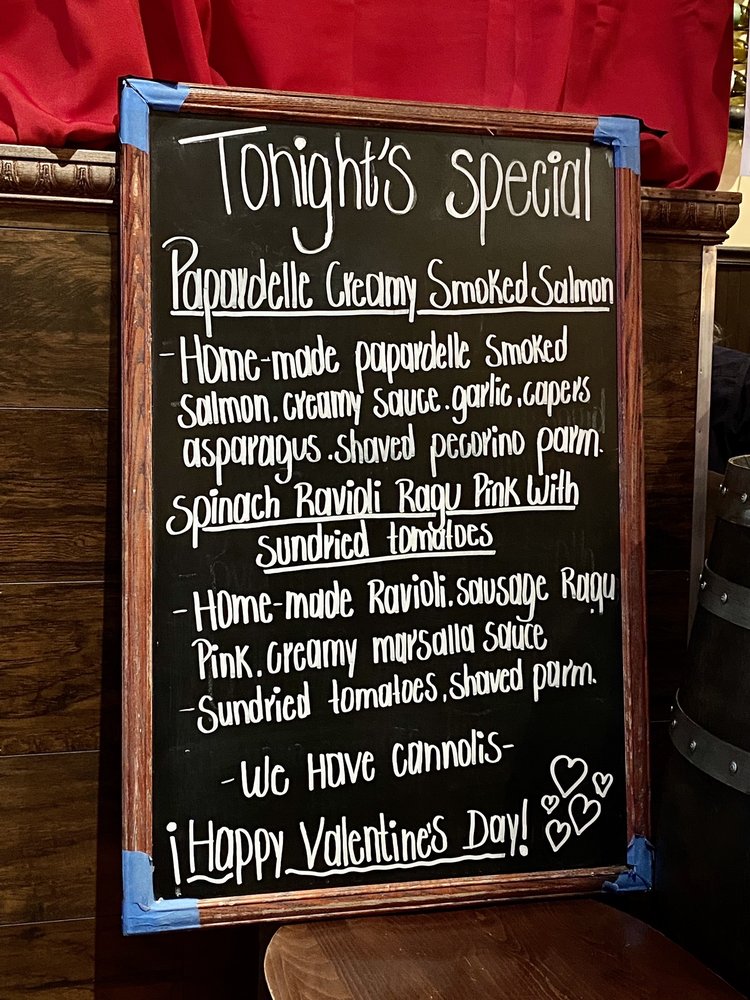 Tonight's special
Papardelle Creamy Smoked Salmon
-Home-made papardelle smoked
salmon, creamy sauce, garlic, capers
asparagus, shaved pecorino parm.
Spinach Ravioli Ragu Pink with
sundried tomatoes
-Home-made Ravioli, sausage Ragu
Pink, creamy marsalla sauce
-Sundried tomatoes, shaved parm.
-We Have cannolis-
¡Happy Valentine's Day!